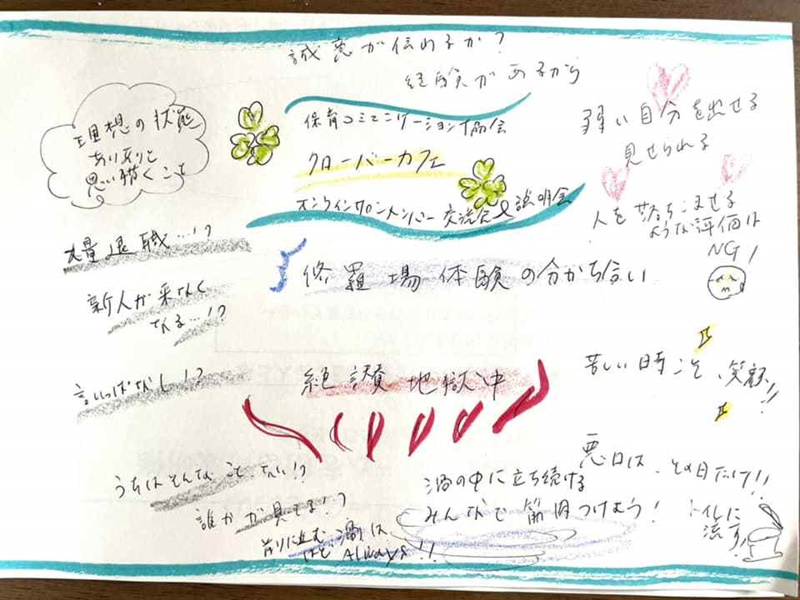 誠意が伝わるか?
経験があるから
理想の状態
ありありと
思い描くこと
保育コミュニケーション協会
クローバーカフェ
オンラインワントンバー 交流会&説明会
弱い自分を出せる
見せられる
人を落ちこませる
ような評価は
NG!
大量退職…!?
新人が来なく
なる…!?
言いっぱなし!?
修羅場体験の分かち合い
絶讃地獄中
苦しい時こそ、笑顔!!
うちはそんなことない!?
誰かが見てる!?
前に進む
渦は
Always!!
渦の中に立ち続ける
みんなで筋肉つけよう!
悪口は、その日だけ!!
トイレに
流す